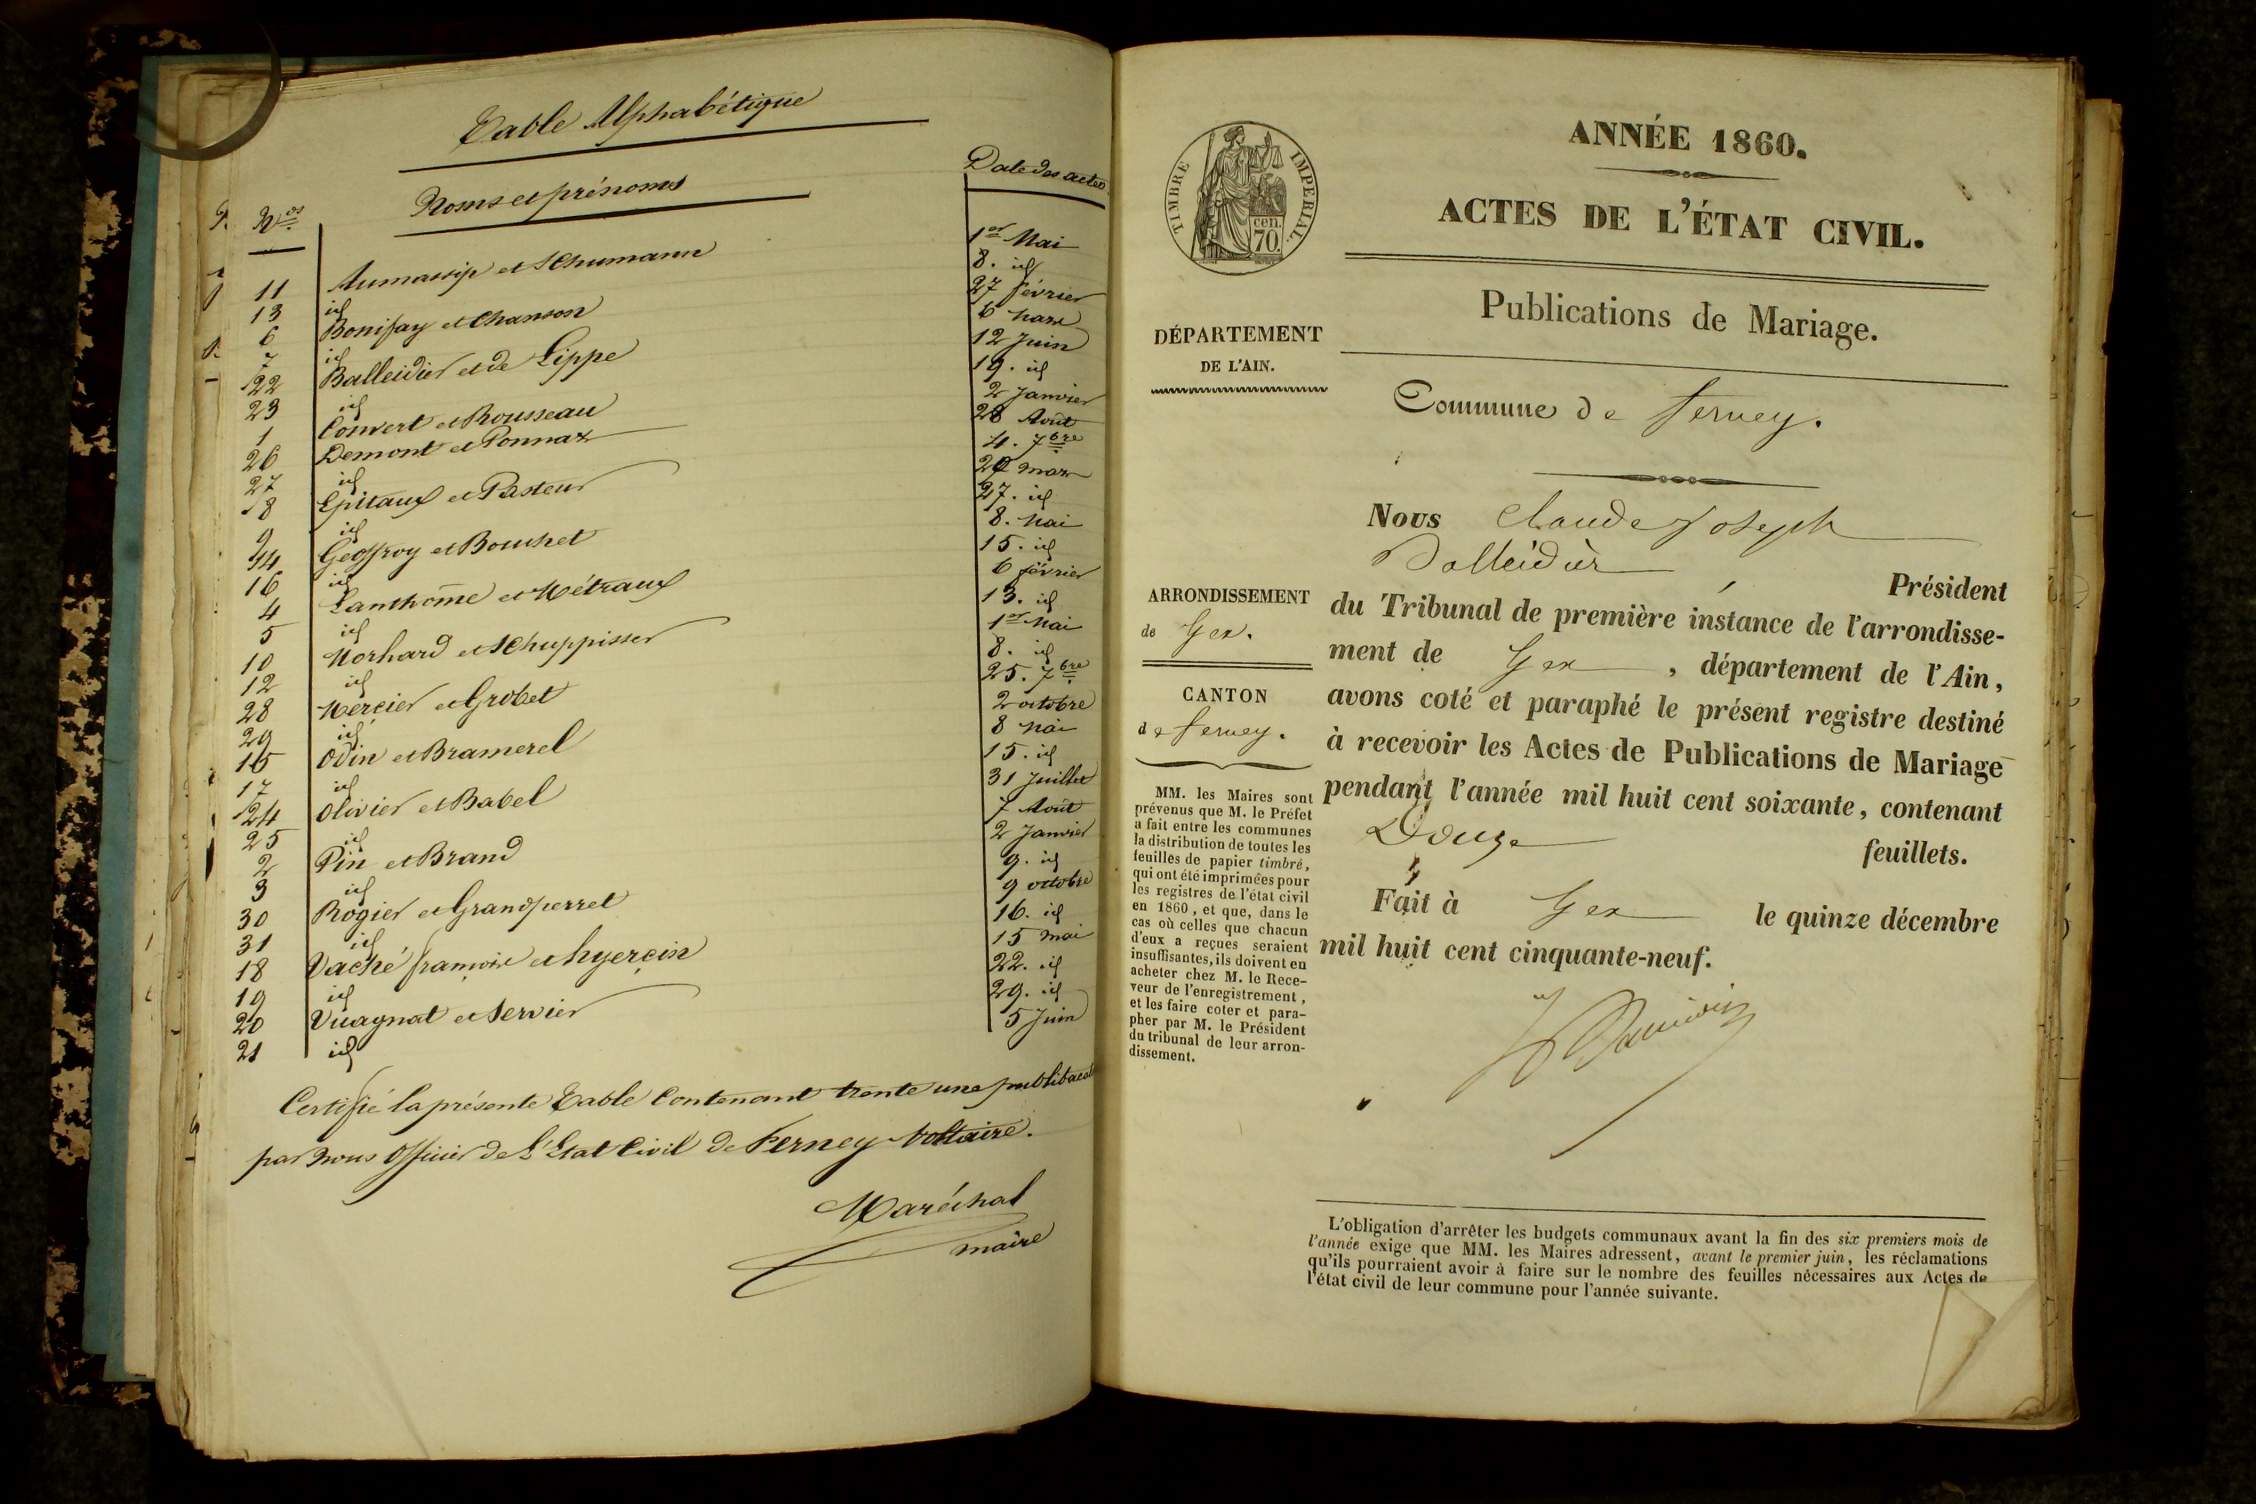 Table Alphabétique
Nos Noms et prénoms Date des actes
11 Aumassip et Schumann 1er Mai
13 id 8. id
6 Bonifay et Chanson 27 février
7 id 6 Mars
22 Balleidier et de Lippe 12 Juin
23 id 19. id
1 Convert et Rousseau 2 Janvier
26 Demont et Ponnaz 28 Août
27 id 4. 7bre
8 Epitaux et Pasteur 20 mars
9 id 27. id
14 Geoffroy et Bouchet 8. Mai
16 id 15. id
4 Lanthôme et Métraux 6 février
5 id 13. id
10 Morhard et Schuppisser 1er Mai
12 id 8. id
28 Mercier et Grobet 25. 7bre
29 id 2 octobre
15 Odin et Bramerel 8 Mai
17 id 15. id
24 Olivier et Babel 31 Juillet
25 id 7 Août
2 Pin et Brand 2 Janvier
3 id 9. id
30 Rogier et Grandperret 9 octobre
31 id 16. id
18 Vaché françoise et 15 mai
19 id 22. id
20 Vuagnat et Servier 29. id
21 id 5 Juin
Certifié la présente Table Contenant trente une
par nous Officier de l'Etat Civil de Ferney Voltaire.
Maréchal
maire
ANNÉE 1860.
ACTES DE L'ÉTAT CIVIL.
TIMBRE IMPERIAL.
cen.
70.
Publications de Mariage.
DÉPARTEMENT
DE L'AIN.
Commune de ferney.
Nous Claude Joseph
Balleidier, Président
du Tribunal de première instance de l'arrondisse-
ment de Gex, département de l'Ain,
avons coté et paraphé le présent registre destiné
à recevoir les Actes de Publications de Mariage
pendant l'année mil huit cent soixante, contenant
Douze feuillets.
Fait à Gex le quinze décembre
mil huit cent cinquante-neuf.
ARRONDISSEMENT
de Gex.
CANTON
de ferney.
MM. les Maires sont
prévenus que M. le Préfet
a fait entre les communes
la distribution de toutes les
feuilles de papier timbré,
qui ont été imprimées pour
les registres de l'état civil
en 1860, et que, dans le
cas où celles que chacun
d'eux a reçues seraient
insuffisantes, ils doivent en
acheter chez M. le Rece-
veur de l'enregistrement,
et les faire coter et para-
pher par M. le Président
du tribunal de leur arron-
dissement.
L'obligation d'arrêter les budgets communaux avant la fin des six premiers mois de
l'année exige que MM. les Maires adressent, avant le premier juin, les réclamations
qu'ils pourraient avoir à faire sur le nombre des feuilles nécessaires aux Actes de
l'état civil de leur commune pour l'année suivante.